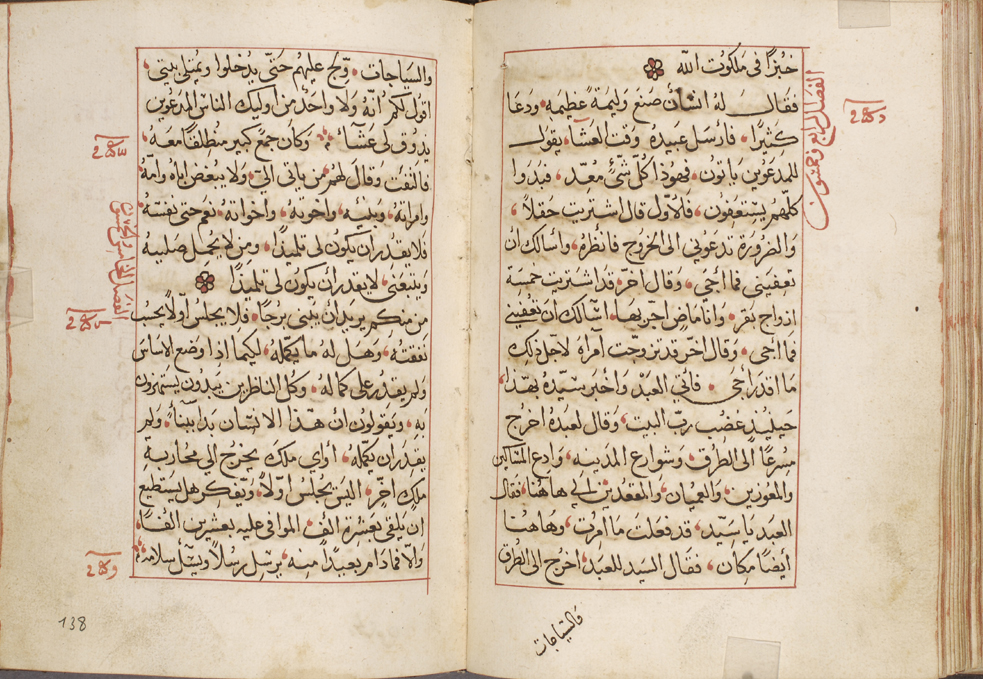 خبزًا في ملكوت الله
فقال له انسان صنع وليمة عظيمه ودعا
كثيرًا فارسل عبيده وقت العشا يقول
للمدعوين ياتون فهوذا كل شئ معد فبدوا
كلهم يستعفون فالاول قال اشتريت حقلاً
والضرورة تدعوني الى الخروج فانظره واسالك ان
تعفيني فما اجي وقال اخر قد اشتريت خمسة
ازواج بقر وانا ماضٍ اجربها اسالك ان تعفيني
فما اجى وقال اخر قد تزوجت امراه لاجل ذلك
ما اقدر اجى فاتى العبد واخبر سيده بهذا
حينيذ غضب رب البيت وقال لعبده اخرج
مسرعًا الى الطرق وشوارع المدينه وادع المساكين
والمعوزين والعميان والمقعدين الى هاهنا فقال
العبد يا سيد قد فعلت ما امرت وهاهنا
أيضًا مكان فقال السيد للعبد اخرج الى الطرق
الفصل الرابع وخمسون
فالسياجات
والسياجات ولج عليهم حتى يدخلوا ويمتلى بيتي
اقول لكم انه ولا واحد من اوليك الناس المدعوين
يدوق لى عشاء وكان جمع كبير منطلقًا معه
فالتفت وقال لهم من ياتى الى ولا يبغض اباه وامه
وامراته وبنيه واخوته واخواته نعم حتى نفسه
فلا يقدر ان يكون لى تلميذًا ومن لا يحمل صليبه
ويتبعنى لا يقدر ان يكون لى تلميذًا
من منكم يريد أن يبنى برجًا فلا يجلس أولاً يحسب
نفقته وهل له ما يكمله لكيما اذا وضع الاساس
ولم يقدر على كماله وكل الناظرين يبدون يستهزون
به ويقولون ان هذا الانسان بدا بيناءً ولم
يقدر ان يكمله أو أي ملك يخرج الي محاربة
ملك اخر اليس يجلس اولاً ويفكر هل يستطيع
ان يلقى بعشرة الف الموافى عليه بعشرين الفًا
والا فما دام بعيدًا منه يرسل رسلاً ويسأل سلامه
138